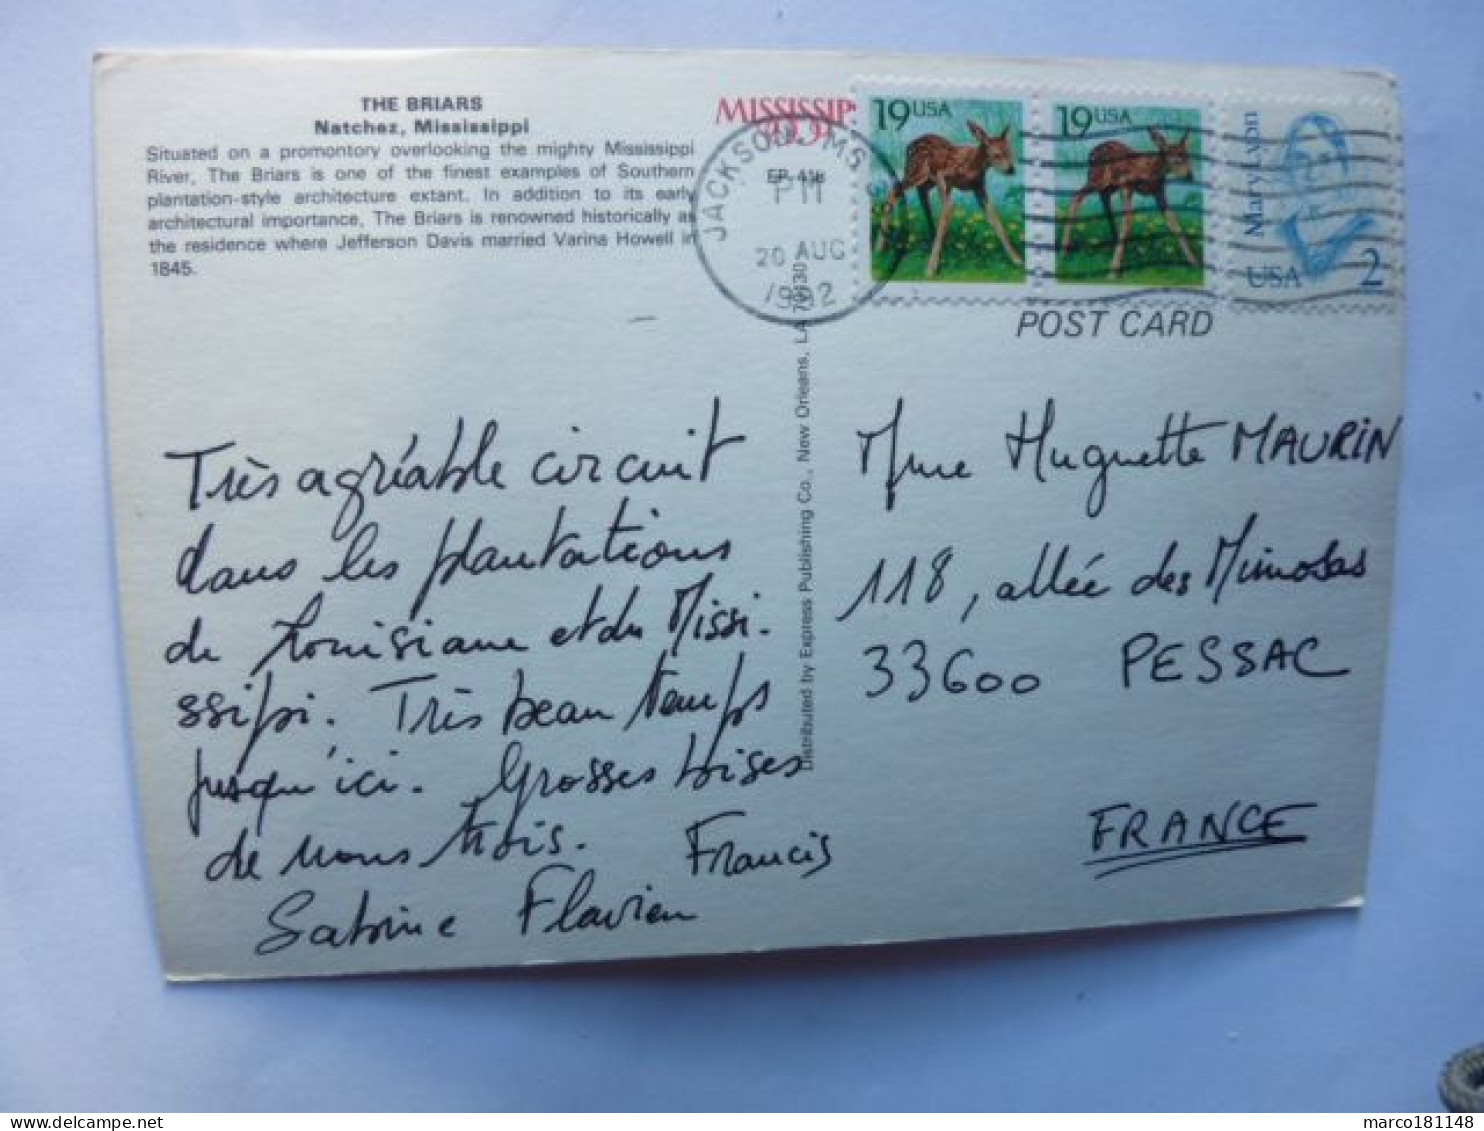 THE BRIARS
Natchez, Mississippi
Situated on a promontory overlooking the mighty Mississippi
River, The Briars is one of the finest examples of Southern
plantation-style architecture extant. In addition to its early
architectural importance, The Briars is renowned historically as
the residence where Jefferson Davis married Varina Howell in
1845.
MISSISSIP
JACKSON MS
EP. 418
PM
20 AUG
1992
19USA
19USA
Mary Lyon
USA 2
POST CARD
Distributed by Express Publishing Co., New Orleans, LA 70130
Très agréable circuit
dans les plantations
de Louisiane et du Missi-
ssipi. Très beau temps
jusqu'ici. Grosses bises
de nous trois. Francis
Sabine Flavien
Mme Huguette MAURIN
118, allée des Mimosas
33600 PESSAC
FRANCE
marco181148